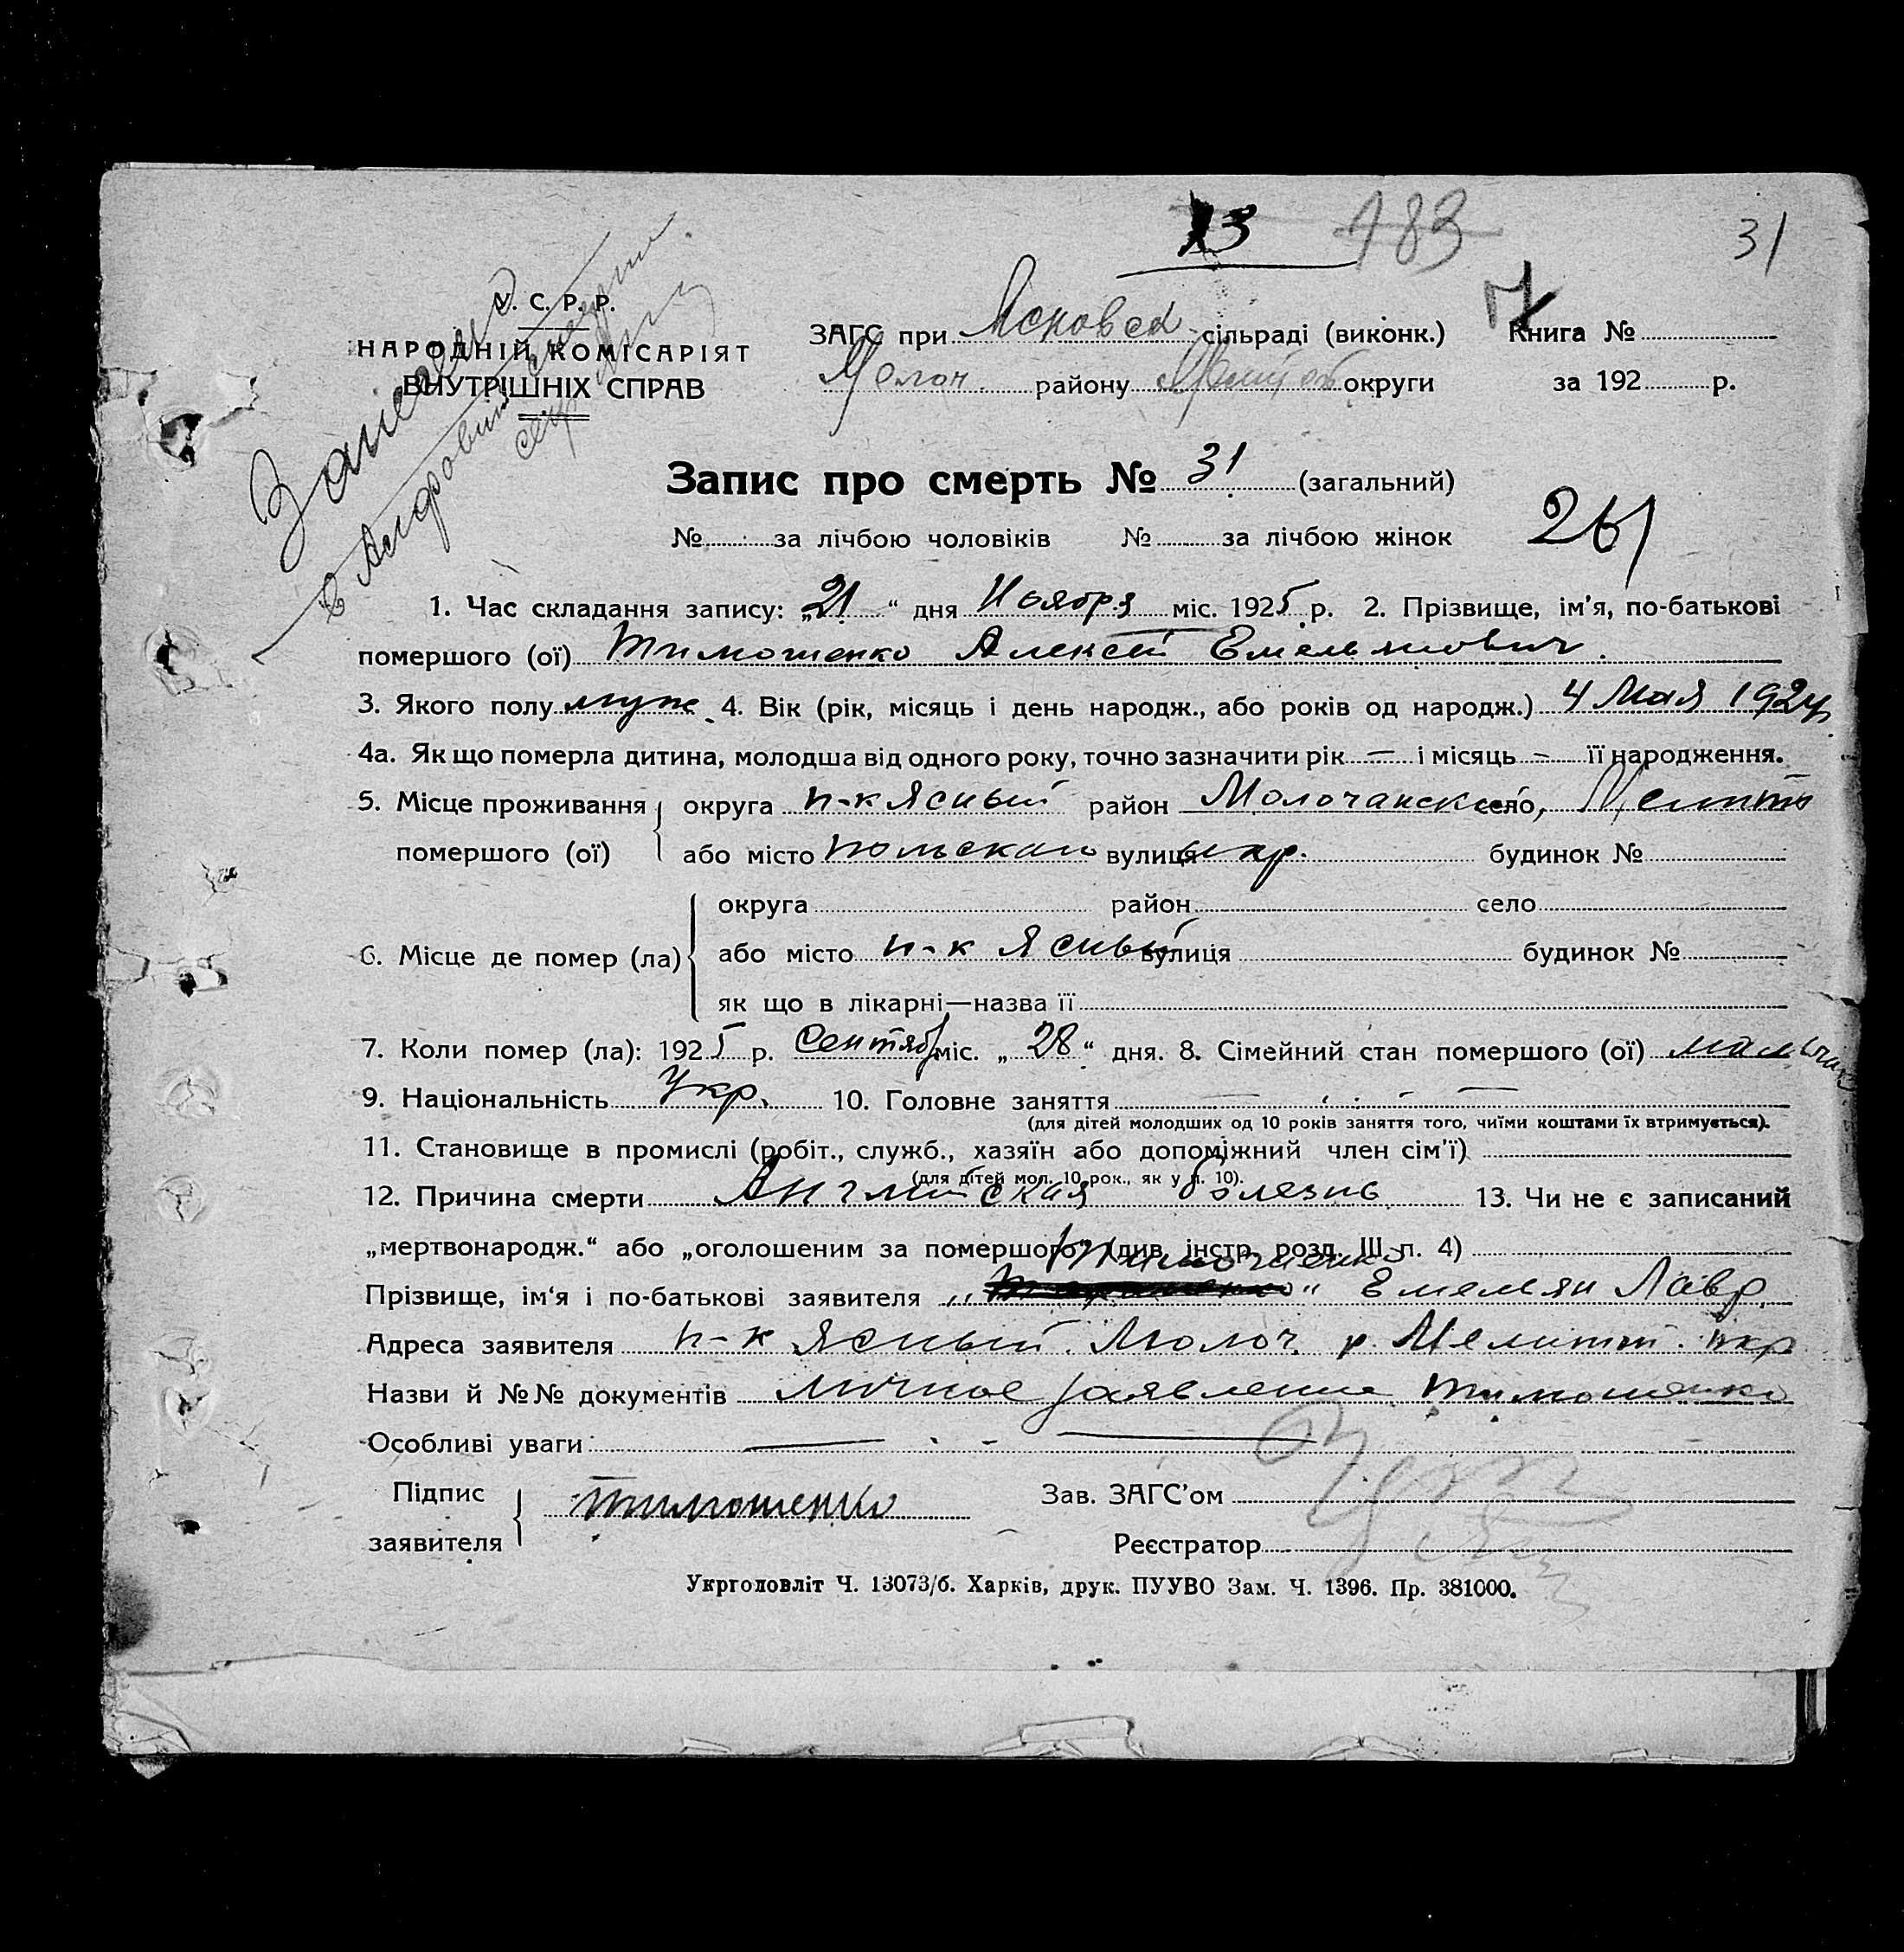 13 183 31
У. С. Р. Р.
НАРОДНІЙ КОМІСАРІЯТ
ВНУТРІШНІХ СПРАВ
ЗАГС при сільраді (виконк.) Книга №
Молоч. району округи за 192 р.
Запис про смерть № 31 (загальний)
261
№ за лічбою чоловіків № за лічбою жінок
1. Час складання запису: „21“ дня Ноября міс. 1925 р. 2. Прізвище, ім'я, по-батькові
помершого (ої) Тимошенко Алексей Емельянович.
3. Якого полу муж. 4. Вік (рік, місяць і день народж., або років од народж.) 4 Мая 1924 г.
4а. Як що померла дитина, молодша від одного року, точно зазначити рік — і місяць — її народження.
5. Місце проживання округа п-к Ясный район Молочанск село, Мелито
помершого (ої) або місто польскаго вулиця окр. будинок №
округа район село
6. Місце де помер (ла) або місто п-к Ясный вулиця будинок №
як що в лікарні—назва її
7. Коли помер (ла): 1925 р. Сентяб міс. „28“ дня. 8. Сімейний стан помершого (ої) мальчик
9. Національність Укр. 10. Головне заняття —
(для дітей молодших од 10 років заняття того, чиїми коштами їх втримується).
11. Становище в промислі (робіт., служб., хазяїн або допоміжний член сім'ї)
(для дітей мол. 10 рок., як у п. 10).
12. Причина смерти Английская болезнь 13. Чи не є записаний
„мертвонародж.“ або „оголошеним за помершого“ (див. інстр. розд. III п. 4)
Тимошенко
Прізвище, ім'я і по-батькові заявителя Емельян Лавр.
Адреса заявителя п-к Ясный Молоч. р. Мелитоп. окр
Назви й №№ документів личное заявление Тимошенко
Особливі уваги —
Підпис Зав. ЗАГС'ом
Тимошенко
заявителя Реєстратор
Укрголовліт Ч. 13073/б. Харків, друк. ПУУВО Зам. Ч. 1396. Пр. 381000.